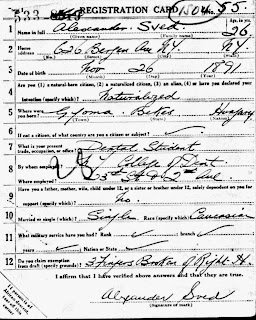 333 REGISTRATION CARD 1504 No. 55.
1 Name in full Alexander Sved Age, in yrs. 26
(Given name) (Family name)
2 Home address 626 Bergen Ave N.Y. N.Y.
(No.) (Street) (City) (State)
3 Date of birth Nov 26 1891
(Month) (Day) (Year)
4 Are you (1) a natural-born citizen, (2) a naturalized citizen, (3) an alien, (4) or have you declared your intention (specify which)? Naturalized
5 Where were you born? Gyoma Bekes Hungary
(Town) (State) (Nation)
6 If not a citizen, of what country are you a citizen or subject?
7 What is your present trade, occupation, or office? Dental Student
8 By whom employed? College of Dent.
Where employed? 2nd Ave.
9 Have you a father, mother, wife, child under 12, or a sister or brother under 12, solely dependent on you for support (specify which)? No.
10 Married or single (which)? Single Race (specify which)? Caucasian
11 What military service have you had? Rank branch
years Nation or State
12 Do you claim exemption from draft (specify grounds)? 3 Fingers Broken of Right H.
I affirm that I have verified above answers and that they are true.
Alexander Sved
(Signature or mark)